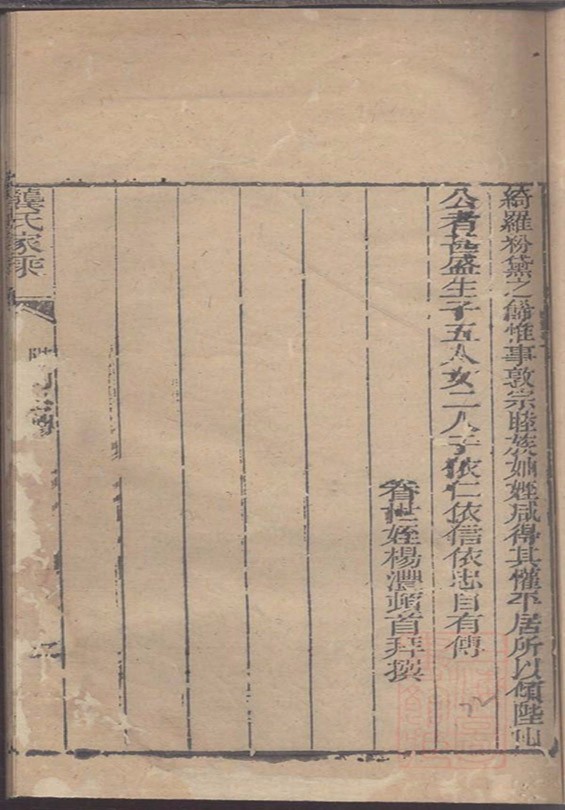 綺羅粉黛之餙惟事敦宗睦族妯娌咸得其懽平居所以傾陛仙
公者甚盛生子五人女二人子依仁依信依忠自有傳
眷世姪楊灃頓首拜撰
龔氏家乘